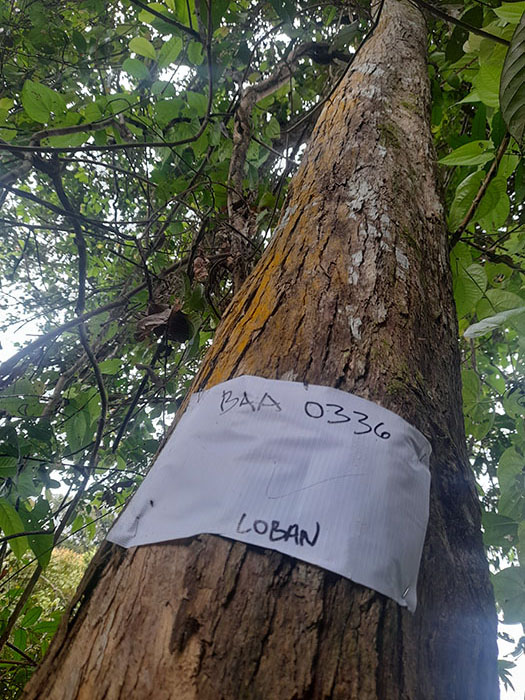 BAA 0336
LOBAN